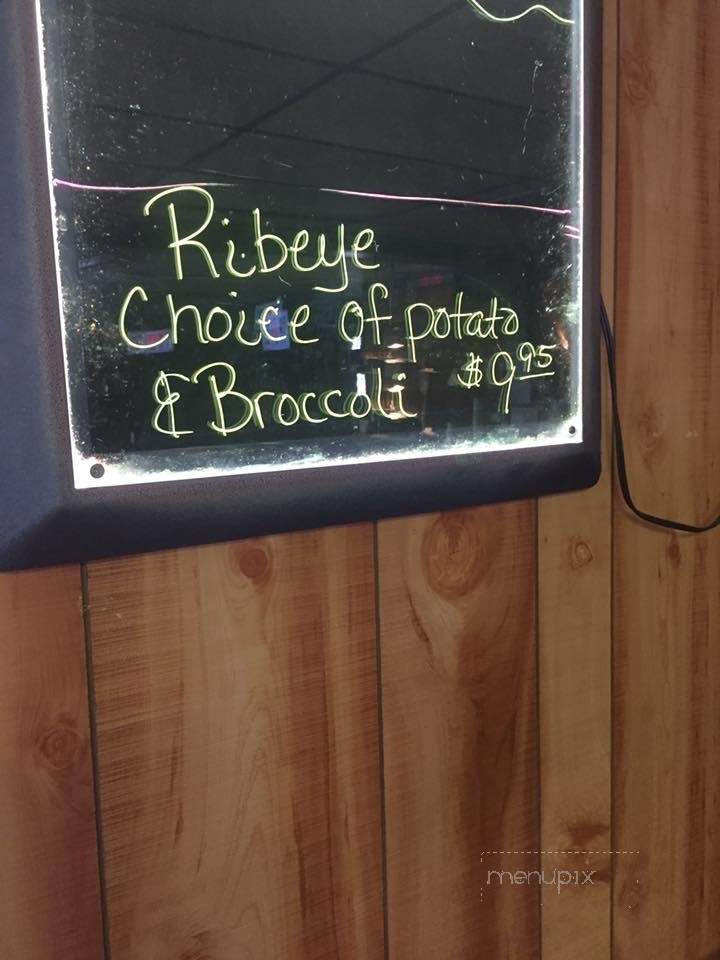 Ribeye
Choice of potato
& Broccoli $9.95
menupix